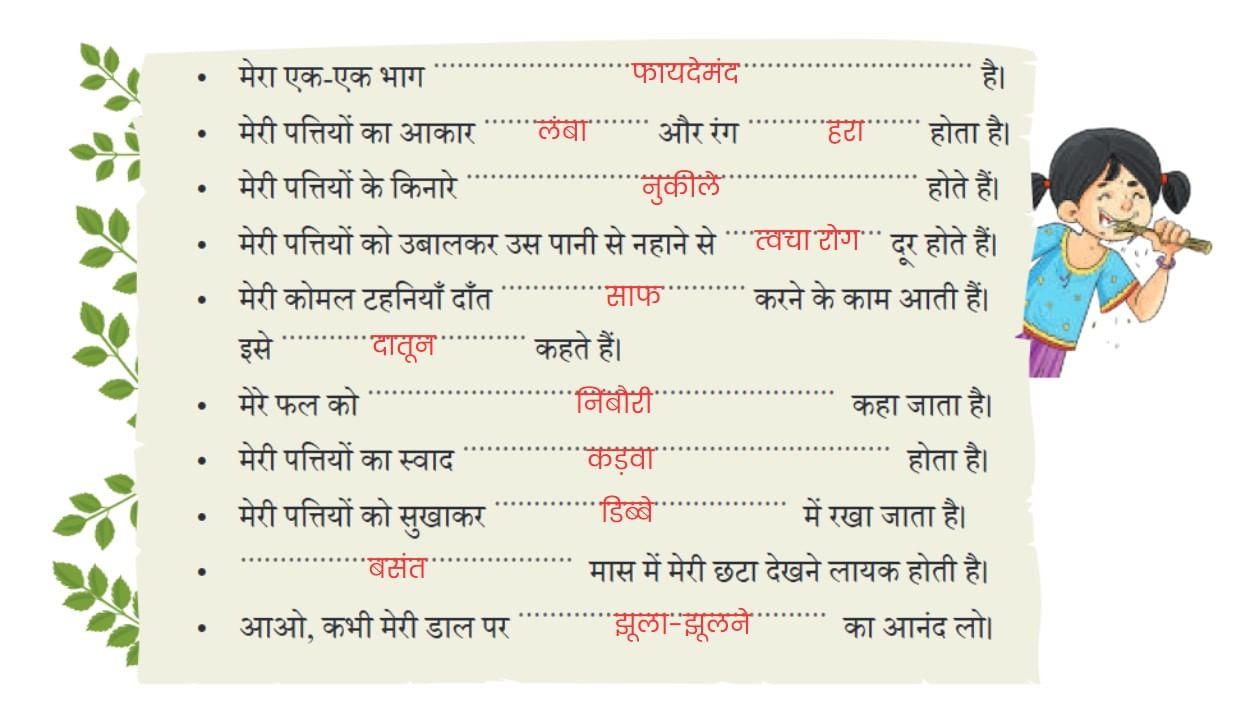 • मेरा एक-एक भाग फायदेमंद है।
• मेरी पत्तियों का आकार लंबा और रंग हरा होता है।
• मेरी पत्तियों के किनारे नुकीले होते हैं।
• मेरी पत्तियों को उबालकर उस पानी से नहाने से त्वचा रोग दूर होते हैं।
• मेरी कोमल टहनियाँ दाँत साफ करने के काम आती हैं।
इसे दातून कहते हैं।
• मेरे फल को निंबौरी कहा जाता है।
• मेरी पत्तियों का स्वाद कड़वा होता है।
• मेरी पत्तियों को सुखाकर डिब्बे में रखा जाता है।
• बसंत मास में मेरी छटा देखने लायक होती है।
• आओ, कभी मेरी डाल पर झूला-झूलने का आनंद लो।